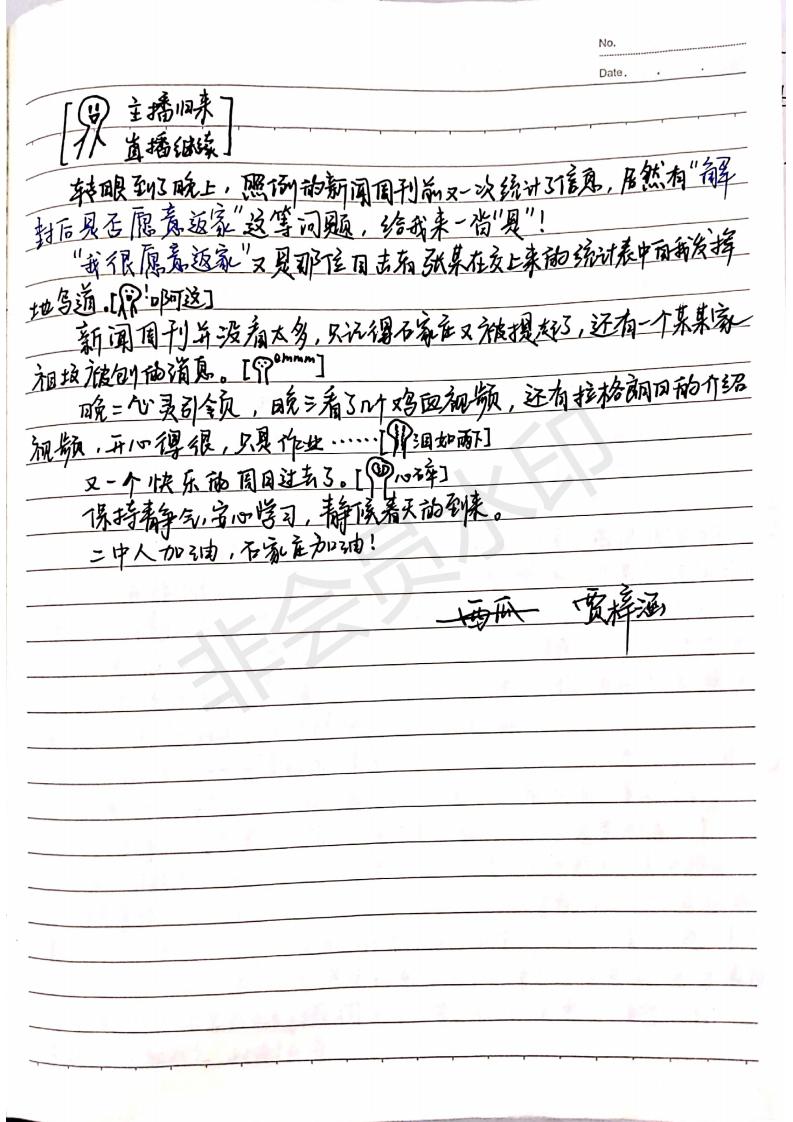 No.
Date.
主播归来
直播继续
转眼到了晚上，照例的新闻周刊前又一次统计了信息，居然有“解
封后是否愿意返家”这等问题，给我来一沓“是”！
“我很愿意返家”又是那位目击者张某在交上来的统计表中自我发挥
地写道.[！啊这]
新闻周刊并没看太多，只记得石家庄又被提起了，还有一个某某家
祖坟被刨的消息。[emmm]
晚二心灵引领，晚三看了几个鸡血视频，还有拉格朗日的介绍
视频，开心得很，只是作业……[泪如雨下]
又一个快乐的周日过去了。[心碎]
保持静气，安心学习，静候春天的到来。
二中人加油，石家庄加油！
西瓜 贾梓涵
非会员水印